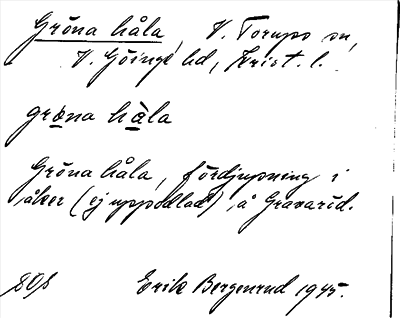 Gröna håla, V. Torups sn,
V. Göinge hd, Krist. l.
grö̱na hå̱la
Gröna håla, fördjupning i
åker (ej uppodlad) å Gravaröd.
Erik Bergenrud 1945.